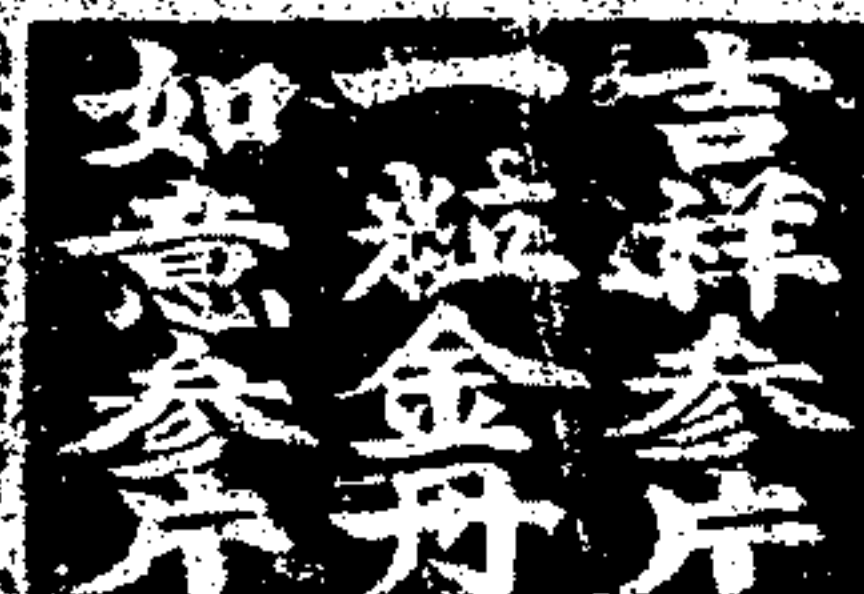 吉祥参片
一粒金丹
如意参片